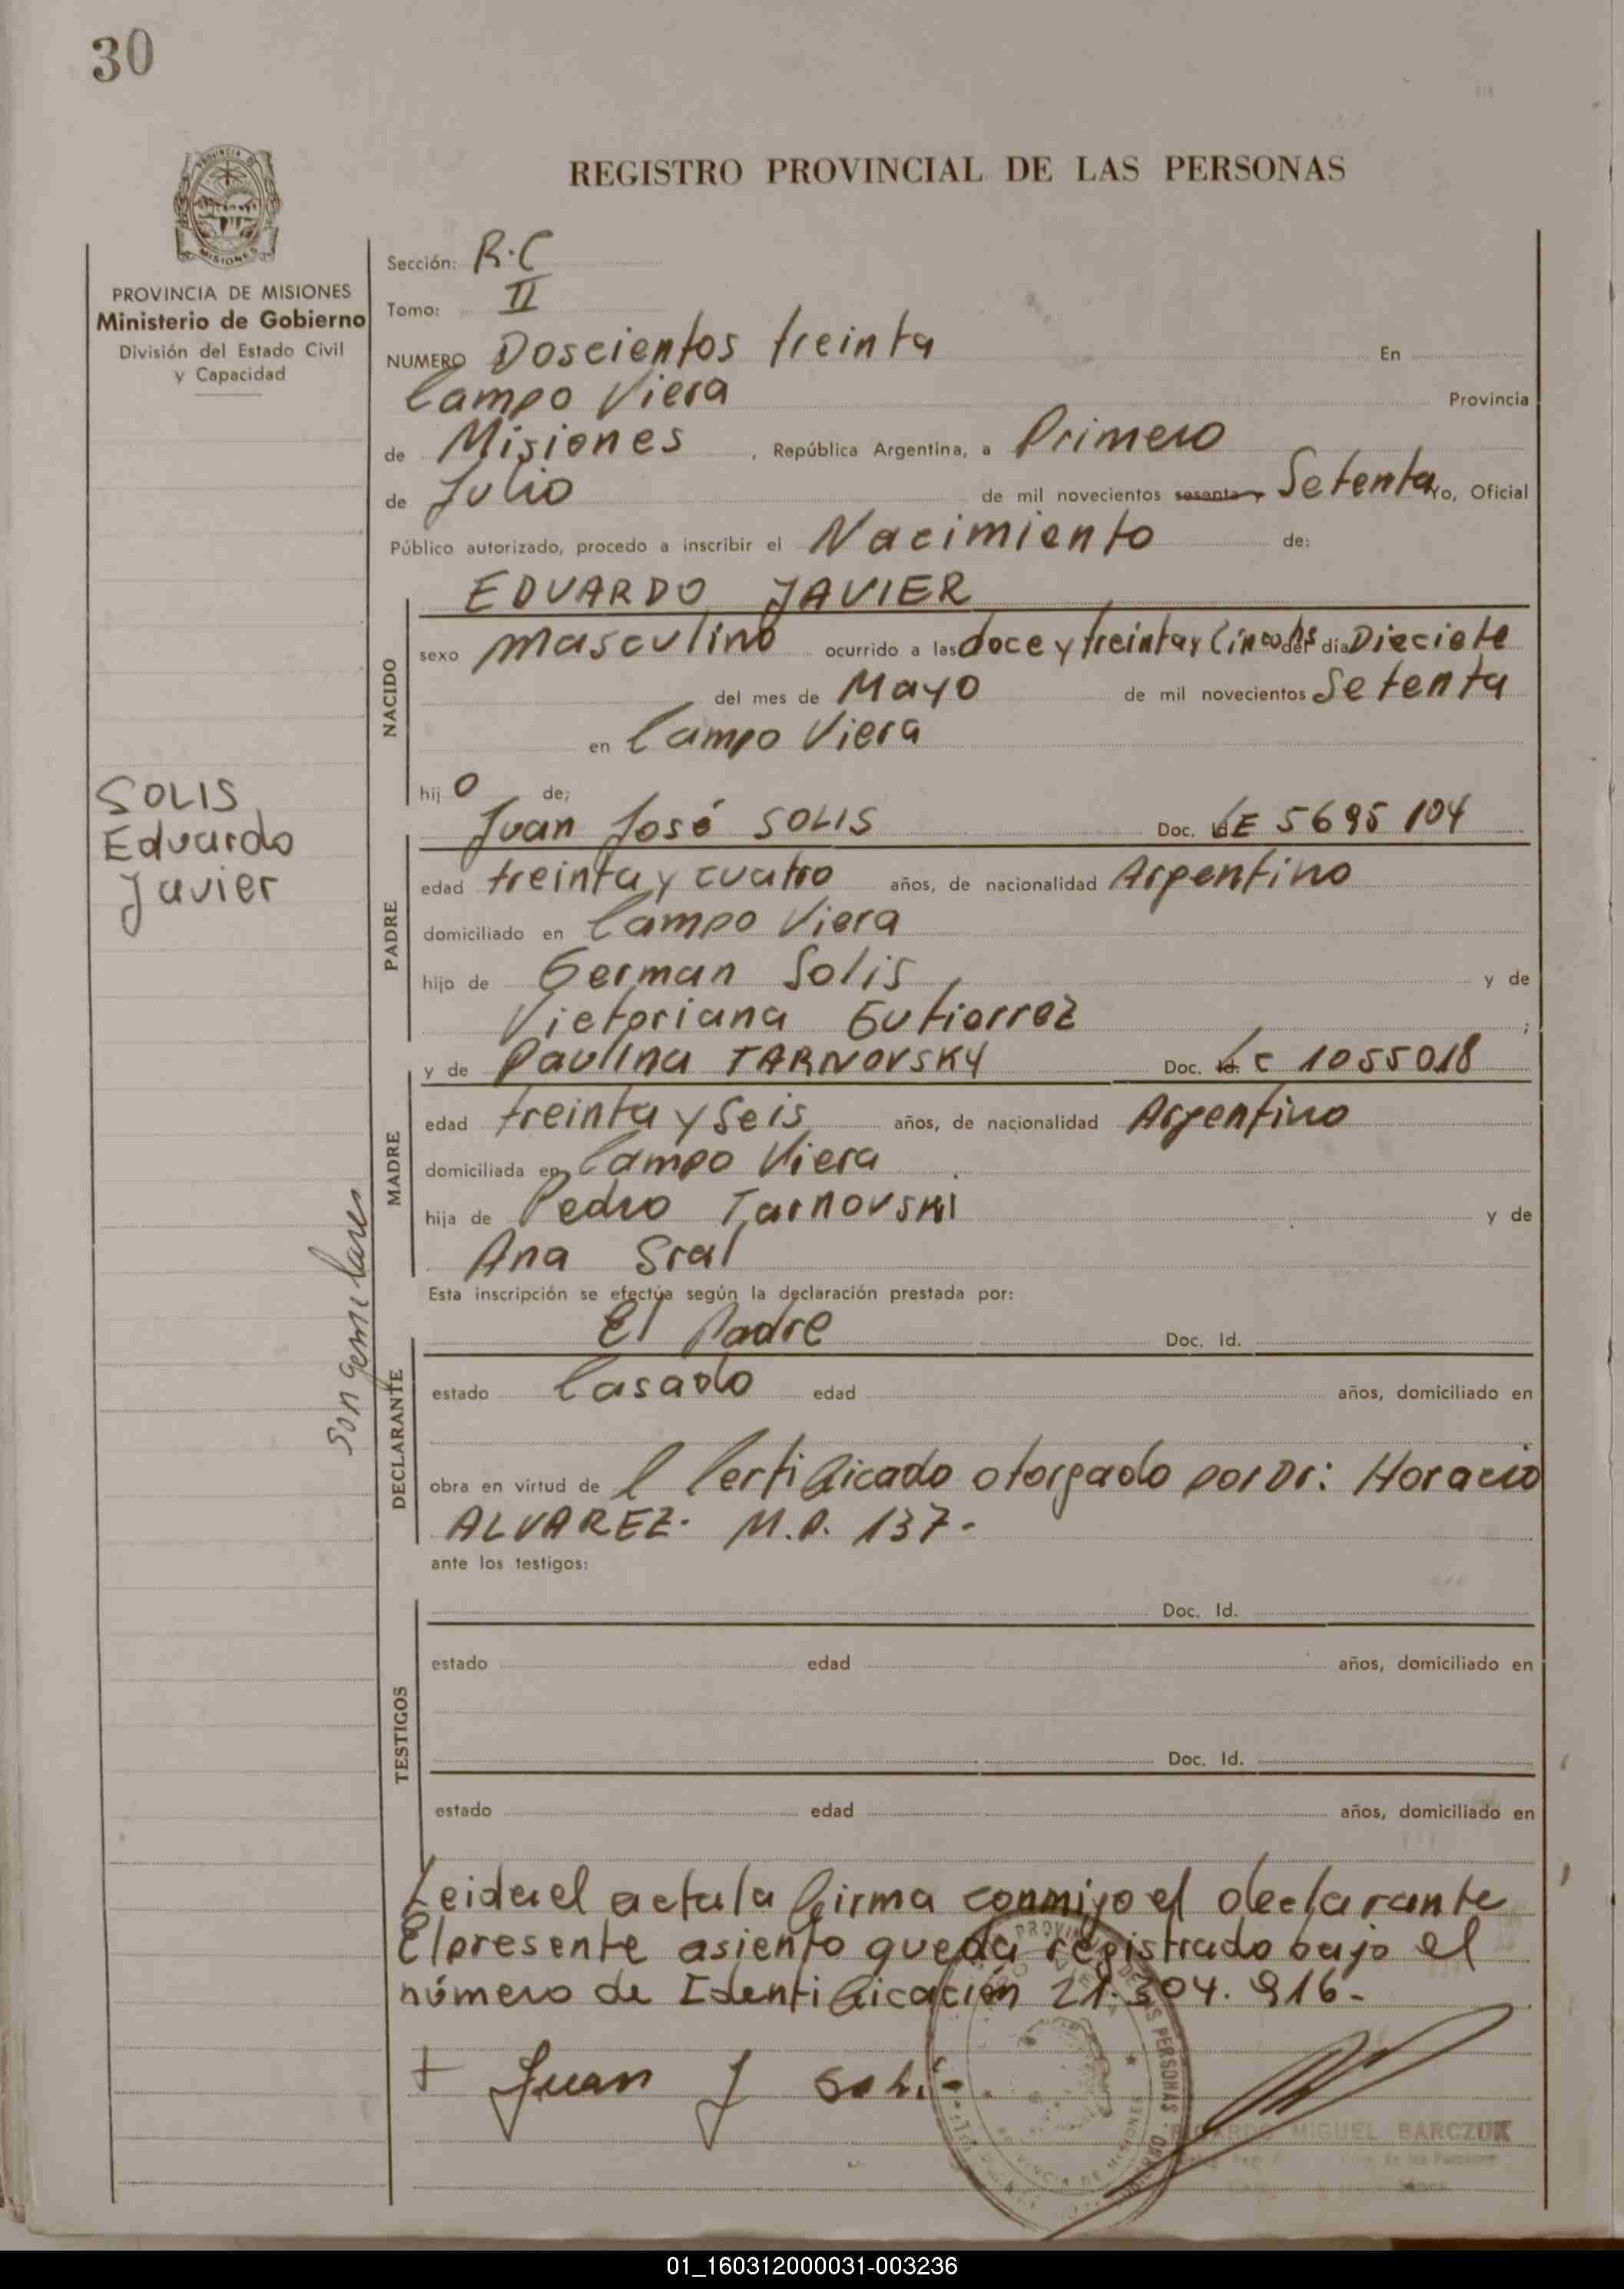 30
PROVINCIA DE MISIONES
Ministerio de Gobierno
División del Estado Civil
y Capacidad
REGISTRO PROVINCIAL DE LAS PERSONAS
Sección: R.C
Tomo: II
NUMERO Doscientos treinta En
Campo Viera Provincia
de Misiones , República Argentina, a Primero
de Julio de mil novecientos sesenta y Setenta Yo, Oficial
Público autorizado, procedo a inscribir el Nacimiento de:
EDUARDO JAVIER
NACIDO
sexo masculino ocurrido a las doce y treinta y Cinco hs del dia Diecicte
del mes de Mayo de mil novecientos Setenta
en Campo Viera
hij o de;
SOLIS
Eduardo
Javier
PADRE
Juan José SOLIS Doc. Id LE 5695104
edad treinta y cuatro años, de nacionalidad Argentino
domiciliado en Campo Viera
hijo de German Solis y de
Victoriana Gutierrez ;
MADRE
y de Paulina TARNOVSKY Doc. Id. LC 1055018
edad treinta y Seis años, de nacionalidad Argentino
domiciliada en Campo Viera
hija de Pedro Tarnovski y de
Ana Sral
Son gemelares
Esta inscripción se efectúa según la declaración prestada por:
DECLARANTE
El Padre Doc. Id.
estado Casado edad años, domiciliado en
obra en virtud de l Certificado otorgado por Dr: Horacio
ALVAREZ. M.P. 137-
ante los testigos:
TESTIGOS
Doc. Id.
estado edad años, domiciliado en
Doc. Id.
estado edad años, domiciliado en
Leida el acta la firma conmigo el declarante
El presente asiento queda registrado bajo el
número de Identificación 21.304.916-
+ Juan J Solis
MIGUEL BARCZUK
01_160312000031-003236